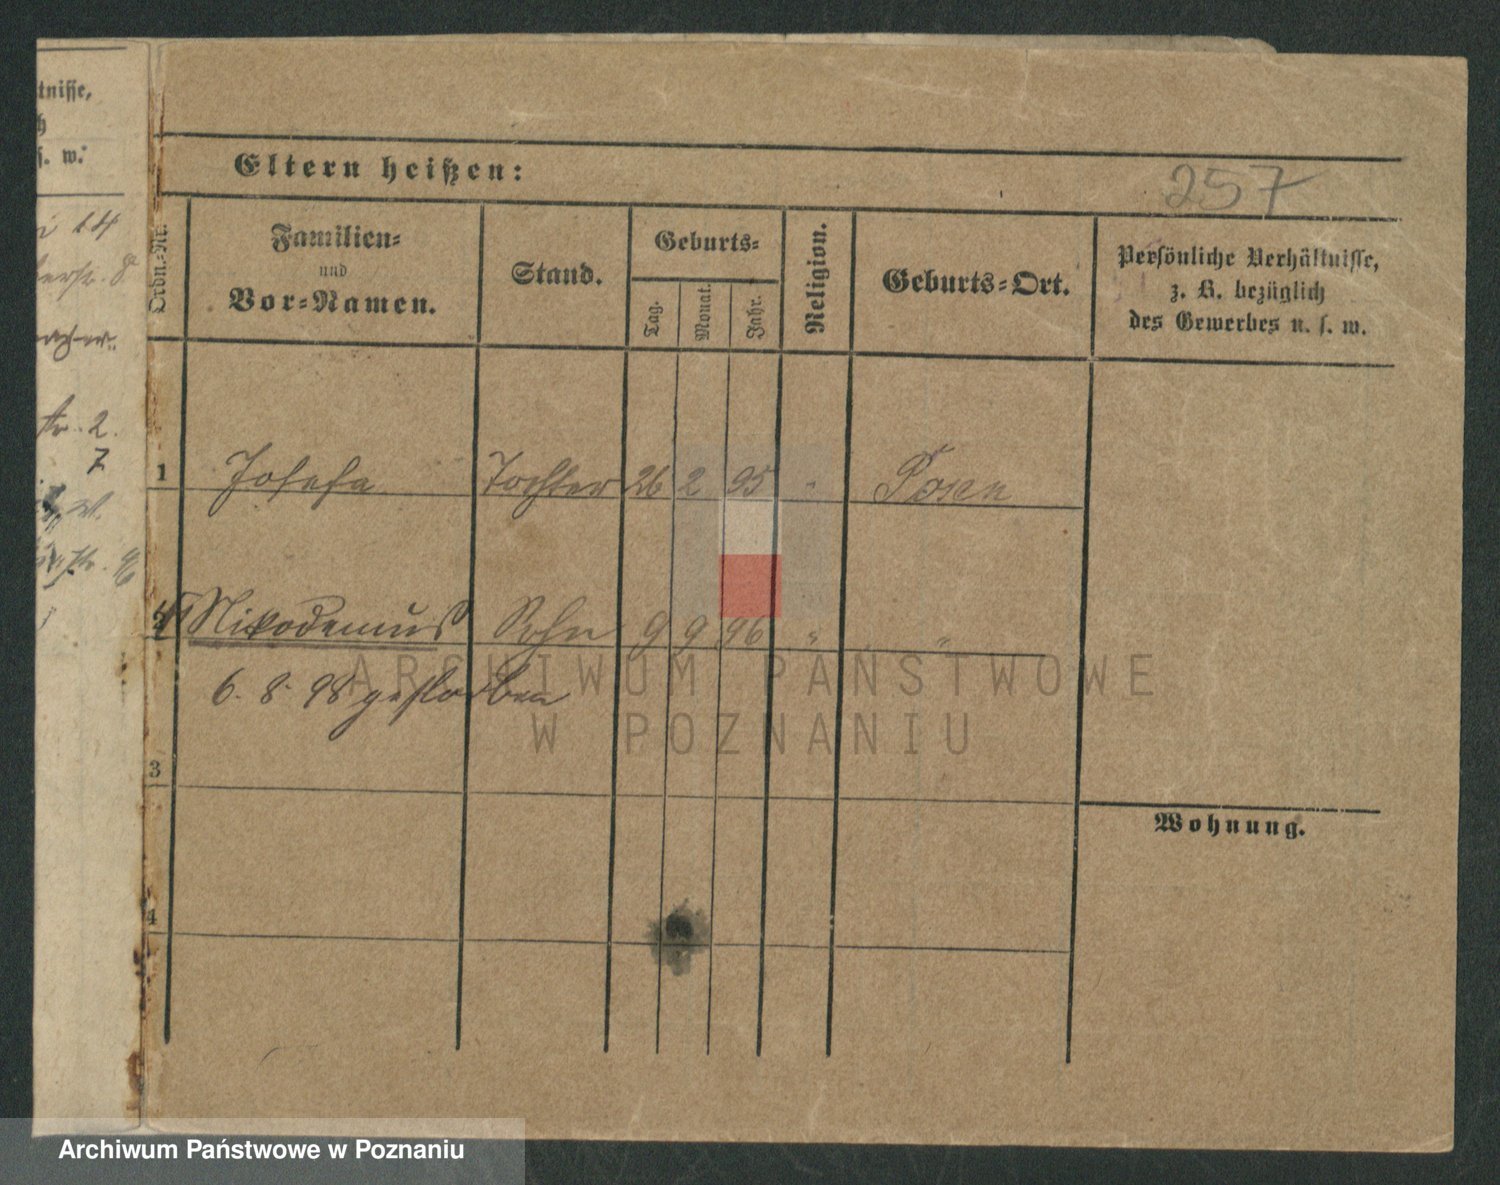 tnisse,
s. w.
14
str. 8
str. 2.
7
W.
Eltern heißen:
257
Ordn.-Nr.
Familien-
und
Vor-Namen.
Stand.
Geburts-
Tag.
Monat.
Jahr.
Religion.
Geburts-Ort.
Persönliche Verhältnisse,
z. B. bezüglich
des Gewerbes u. s. w.
1 Josefa Tochter 26 2 95 " Posen
2 Nikodemus Sohn 9 9 96 " "
6. 8. 98 gestorben
3
Wohnung.
4
ARCHIWUM PAŃSTWOWE
W POZNANIU
Archiwum Państwowe w Poznaniu